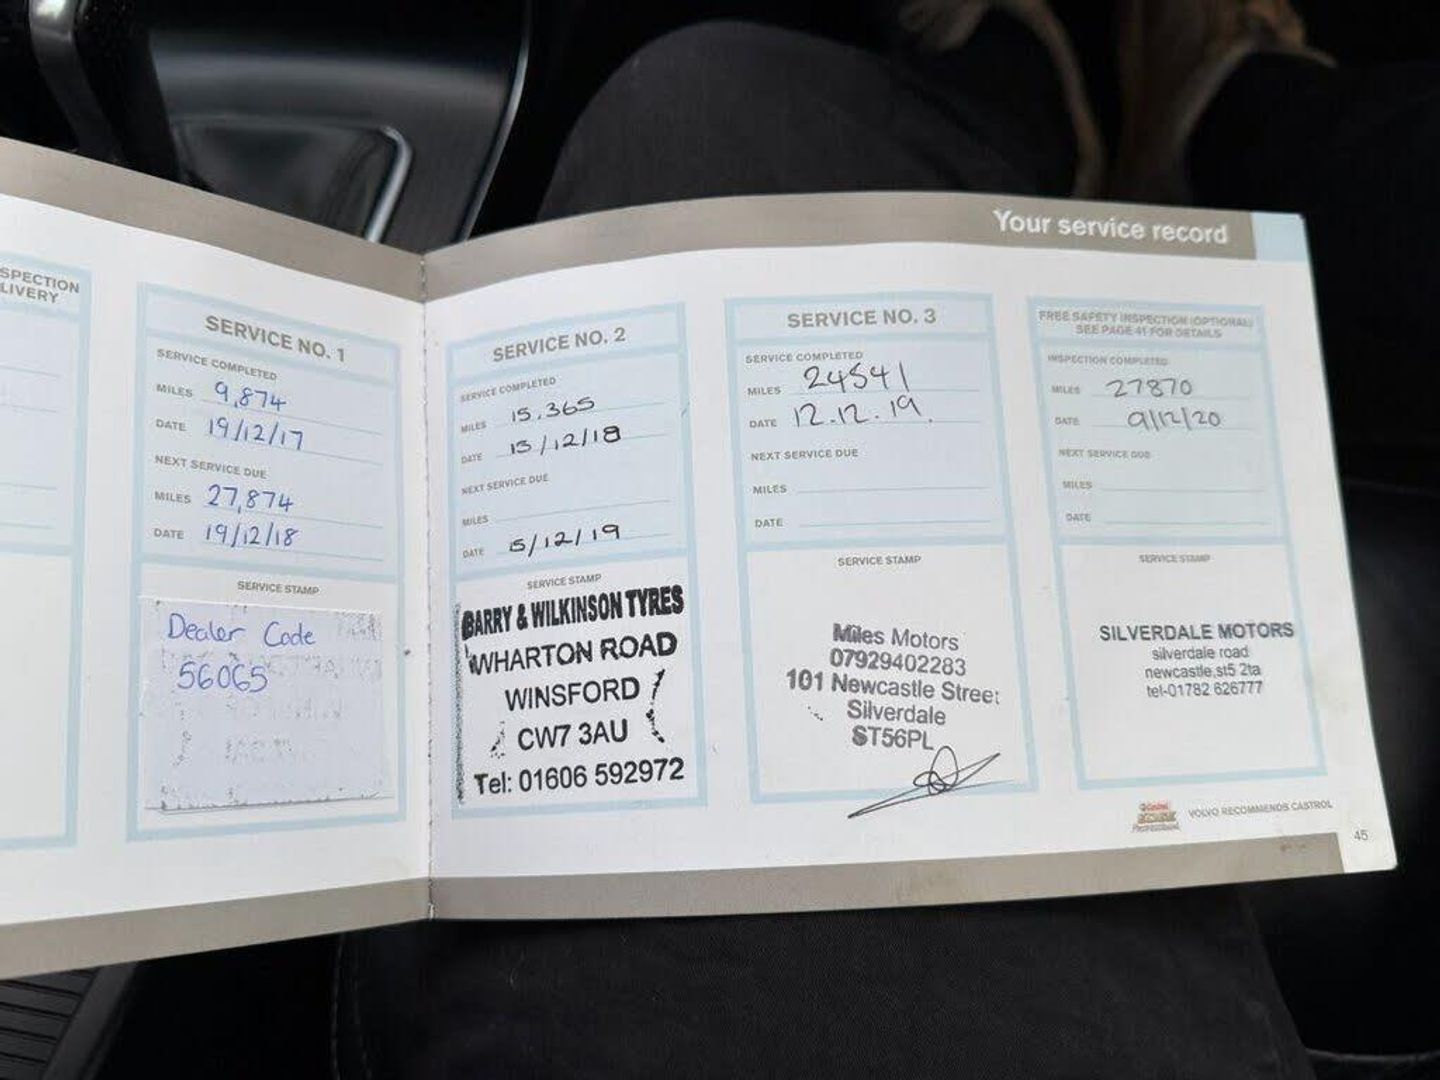 SPECTION
LIVERY
SERVICE NO. 1
SERVICE COMPLETED
MILES 9,874
DATE 19/12/17
NEXT SERVICE DUE
MILES 27,874
DATE 19/12/18
SERVICE STAMP
Dealer Code
56065
SERVICE NO. 2
SERVICE COMPLETED
MILES 15.365
DATE 15/12/18
NEXT SERVICE DUE
MILES
DATE 15/12/19
SERVICE STAMP
BARRY & WILKINSON TYRES
WHARTON ROAD
WINSFORD
CW7 3AU
Tel: 01606 592972
Your service record
SERVICE NO. 3
SERVICE COMPLETED
MILES 24541
DATE 12.12.19.
NEXT SERVICE DUE
MILES
DATE
SERVICE STAMP
Miles Motors
07929402283
101 Newcastle Street
Silverdale
ST56PL
FREE SAFETY INSPECTION (OPTIONAL)
SEE PAGE 41 FOR DETAILS
INSPECTION COMPLETED
MILES 27870
DATE 9/12/20
NEXT SERVICE DUE
MILES
DATE
SERVICE STAMP
SILVERDALE MOTORS
silverdale road
newcastle,st5 2ta
tel-01782 626777
Castrol
EDGE
Professional
VOLVO RECOMMENDS CASTROL
45